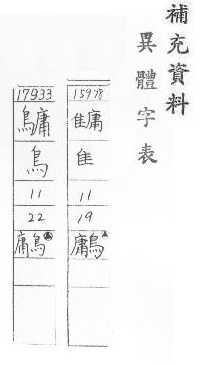 補充資料
異體字表
15978
隹
11
19
鷛
17933
鳥
11
22
鷛